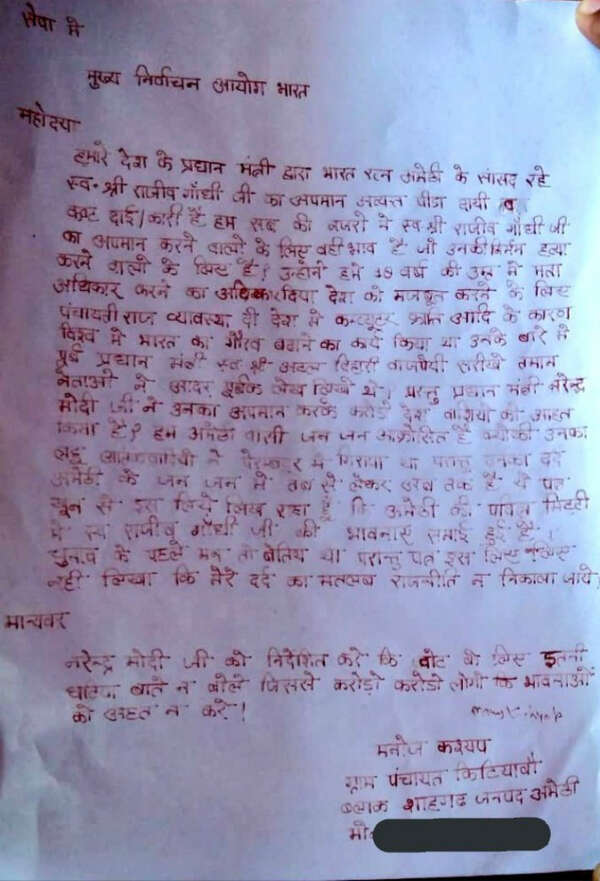 सेवा मे
मुख्य निर्वाचन आयोग भारत
महोदया
हमारे देश के प्रधान मंत्री द्वारा भारत रत्न अमेठी के सांसद रहे
स्व. श्री राजीव गाँधी जी का अपमान अत्यन्त पीडा दायी व
कष्ट दाई/कारी है हम सब की नजरो मे स्व श्री राजीव गाँधी जी
का अपमान करने वालो के लिए वही भाव है जो उनकी निर्मम हत्या
करने वालो के लिए है! उन्होने हमे 18 वर्ष की उम्र मे मता
अधिकार करने का अधिकार दिया देश को मजबूत करने के लिए
पंचायती राज व्यवस्था दी देश मे कम्प्यूटर क्रांति आदि के कारण
विश्व मे भारत का गौरव बढाने का कार्य किया था उनके बारे मे
पूर्व प्रधान मंत्री स्व श्री अटल बिहारी वाजपेयी सरीखे तमाम
नेताओ ने आदर पूर्वक लेख लिखे थे! परन्तु प्रधान मंत्री नरेन्द्र
मोदी जी ने उनका अपमान करके करोडो देश वाशियो को आहत
किया है? हम अमेठी वासी जन जन आक्रोसित है क्योकी उनका
लहू आतंकवादियो ने पेरम्बदूर मे गिराया था परन्तु उनका दर्द
अमेठी के जन जन मे तब से लेकर अब तक है ये पत्र
खून से इस लिये लिख रहा हूँ कि अमेठी की पवित्र मिटटी
मे स्व राजीव गाँधी जी की भावनाएं समाई हुई है!
चुनाव के पहले मन तो था परन्तु पत्र इस लिए
नही लिखा कि मेरे दर्द का मतलब राजनीति न निकाला जाये!
मान्यवर
नरेन्द्र मोदी जी को निर्देशित करे कि वोट के लिए इतनी
बाते न बोले जिससे करोडो करोडो लोगो कि भावनाओं
को आहत न करे!
मनोज कश्यप
ग्राम पंचायत किटियावाँ
ब्लाक शाहगढ जनपद अमेठी
मो.